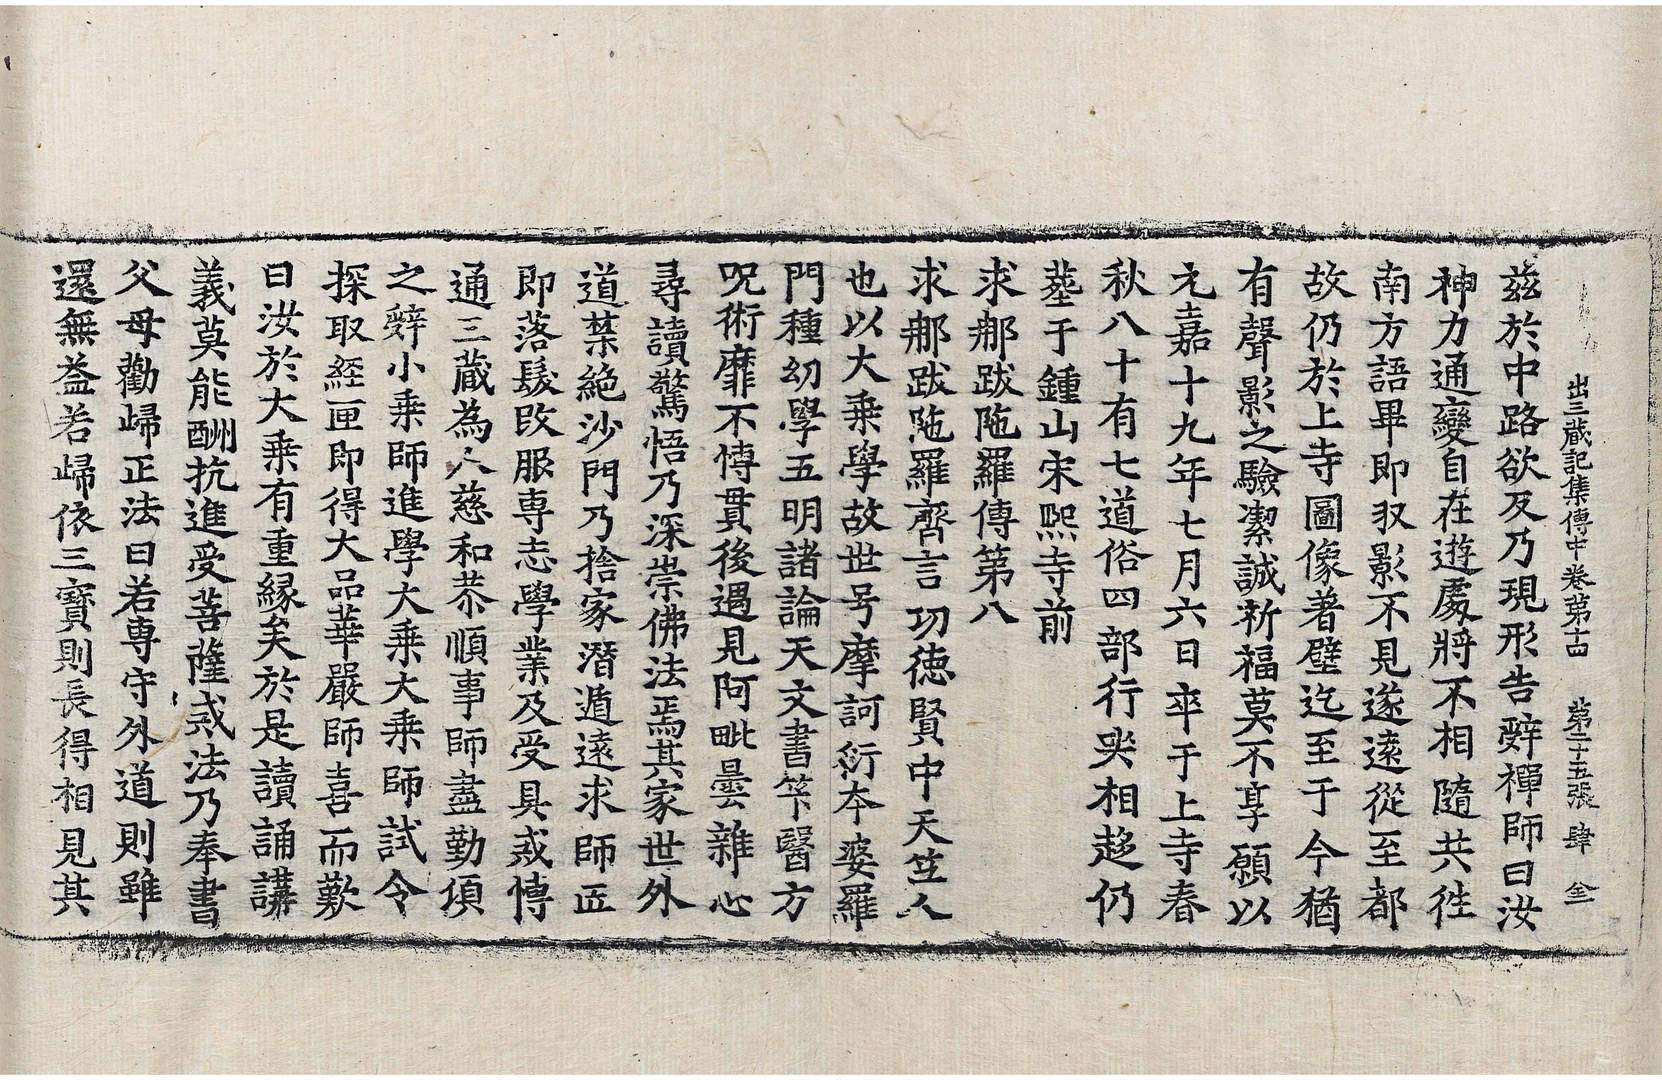 出三蔵記集傳中卷第十四 第二十五張 肆
兹於中路欲反乃現形告辭禪師曰汝
神力通變自在遊處將不相隨共徃
南方語畢即収影不見遂遠從至都
故仍於上寺圖像著壁迄至于今猶
有聲影之驗潔誠祈福莫不享願以
元嘉十九年七月六日卒于上寺春
秋八十有七道俗四部行哭相趍仍
葬于鍾山宋熙寺前
求那跋陁羅傳第八
求那跋陁羅齊言功徳賢中天竺人
也以大乘學故世号摩訶衍本婆羅
門種幼學五明諸論天文書筭醫方
呪術靡不博貫後遇見阿毗曇雜心
尋讀驚悟乃深崇佛法焉其家世外
道禁絶沙門乃捨家潛遁遠求師匠
即落髮改服専志學業及受具戒博
通三蔵為人慈和恭順事師盡勤頃
之辭小乘師進學大乘大乘師試令
探取經匣即得大品華嚴師喜而歎
曰汝於大乘有重縁矣於是讀誦講
義莫能酬抗進受菩薩戒法乃奉書
父母勸歸正法曰若専守外道則雖
還無益若歸依三寶則長得相見其